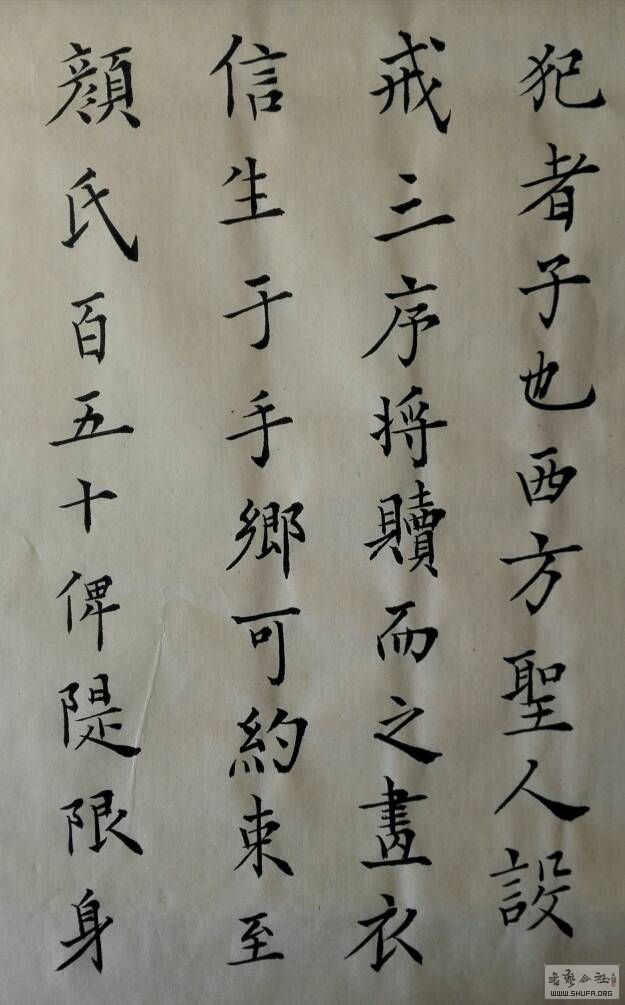 犯者子也西方聖人設
戒三序将贖而之畫衣
信生于手鄉可約束至
顔氏百五十俾隄限身
WWW.SHUFA.ORG